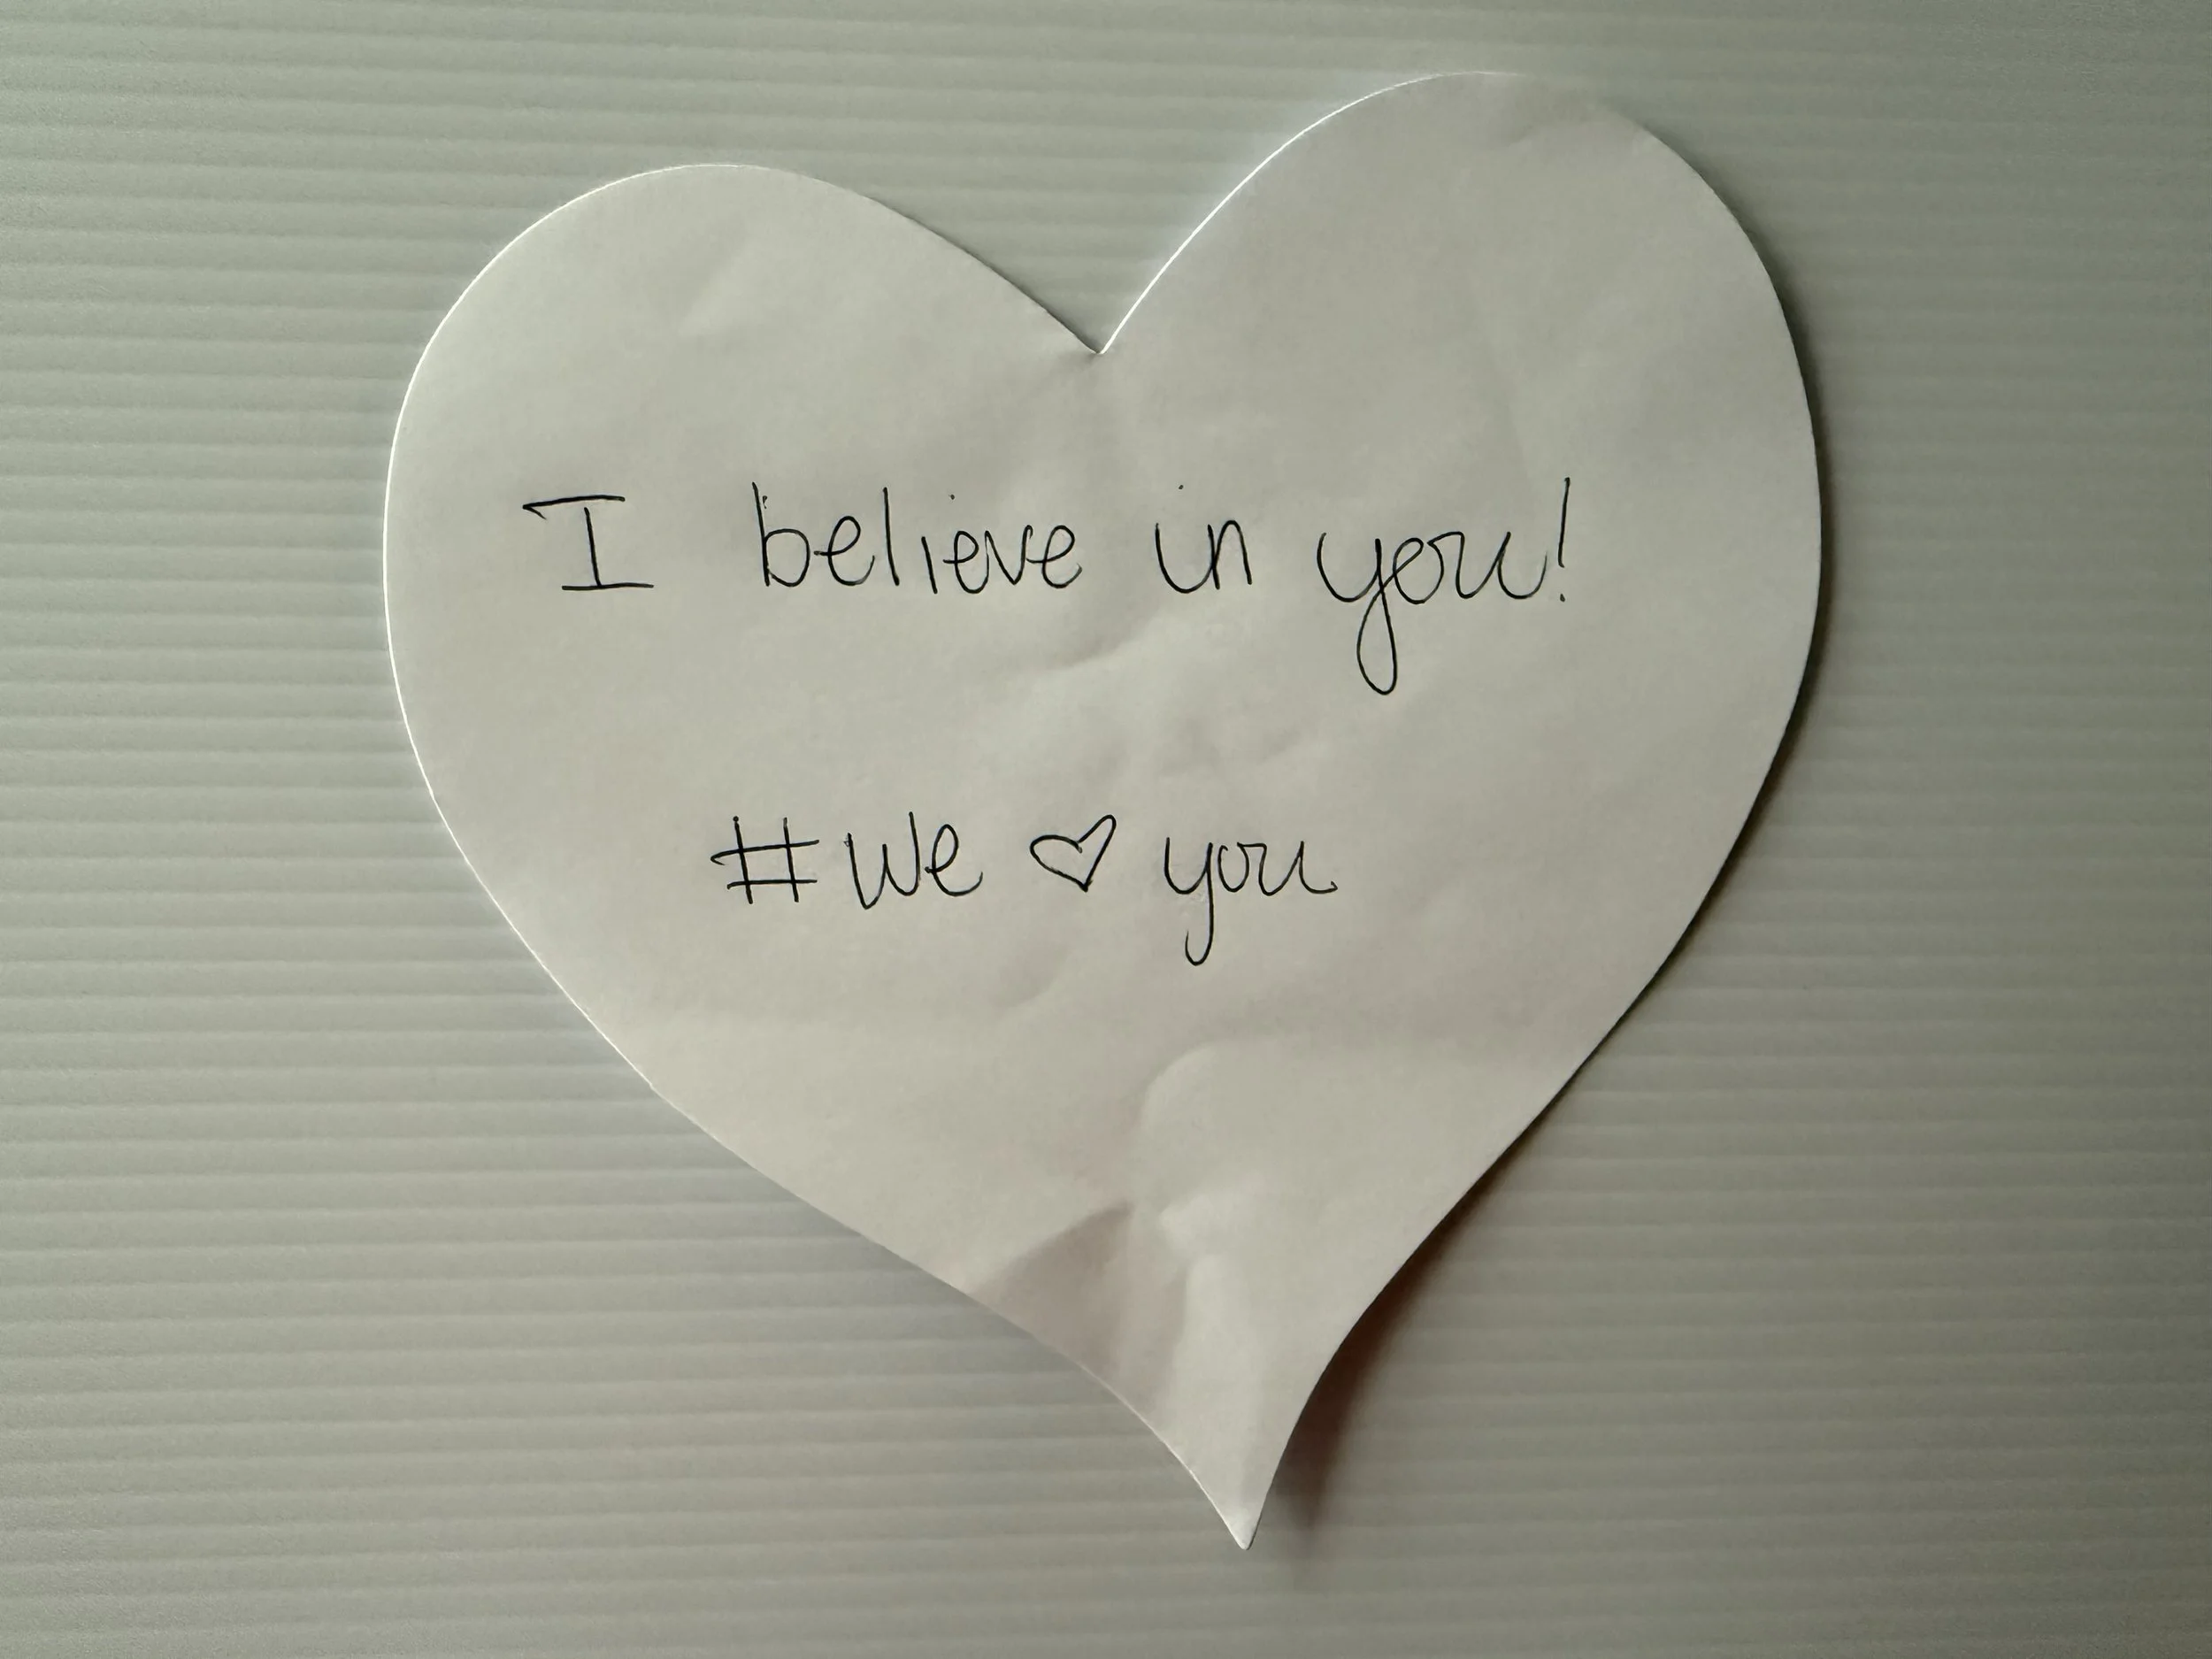 I believe in you!
#We ♡ you